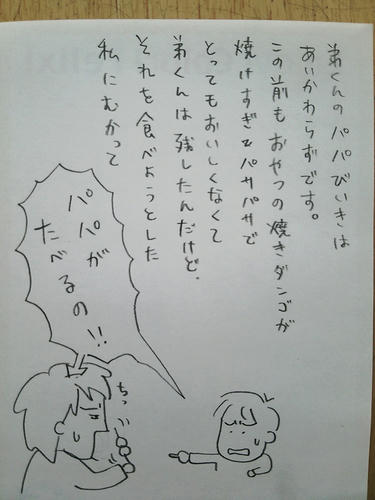 弟くんのパパびいきは
あいかわらずです。
この前もおやつの焼きダンゴが
焼けすぎでパサパサで
とってもおいしくなくて
弟くんは残したんだけど、
それを食べようとした
私にむかって
パパが
たべるの!!
ちっ